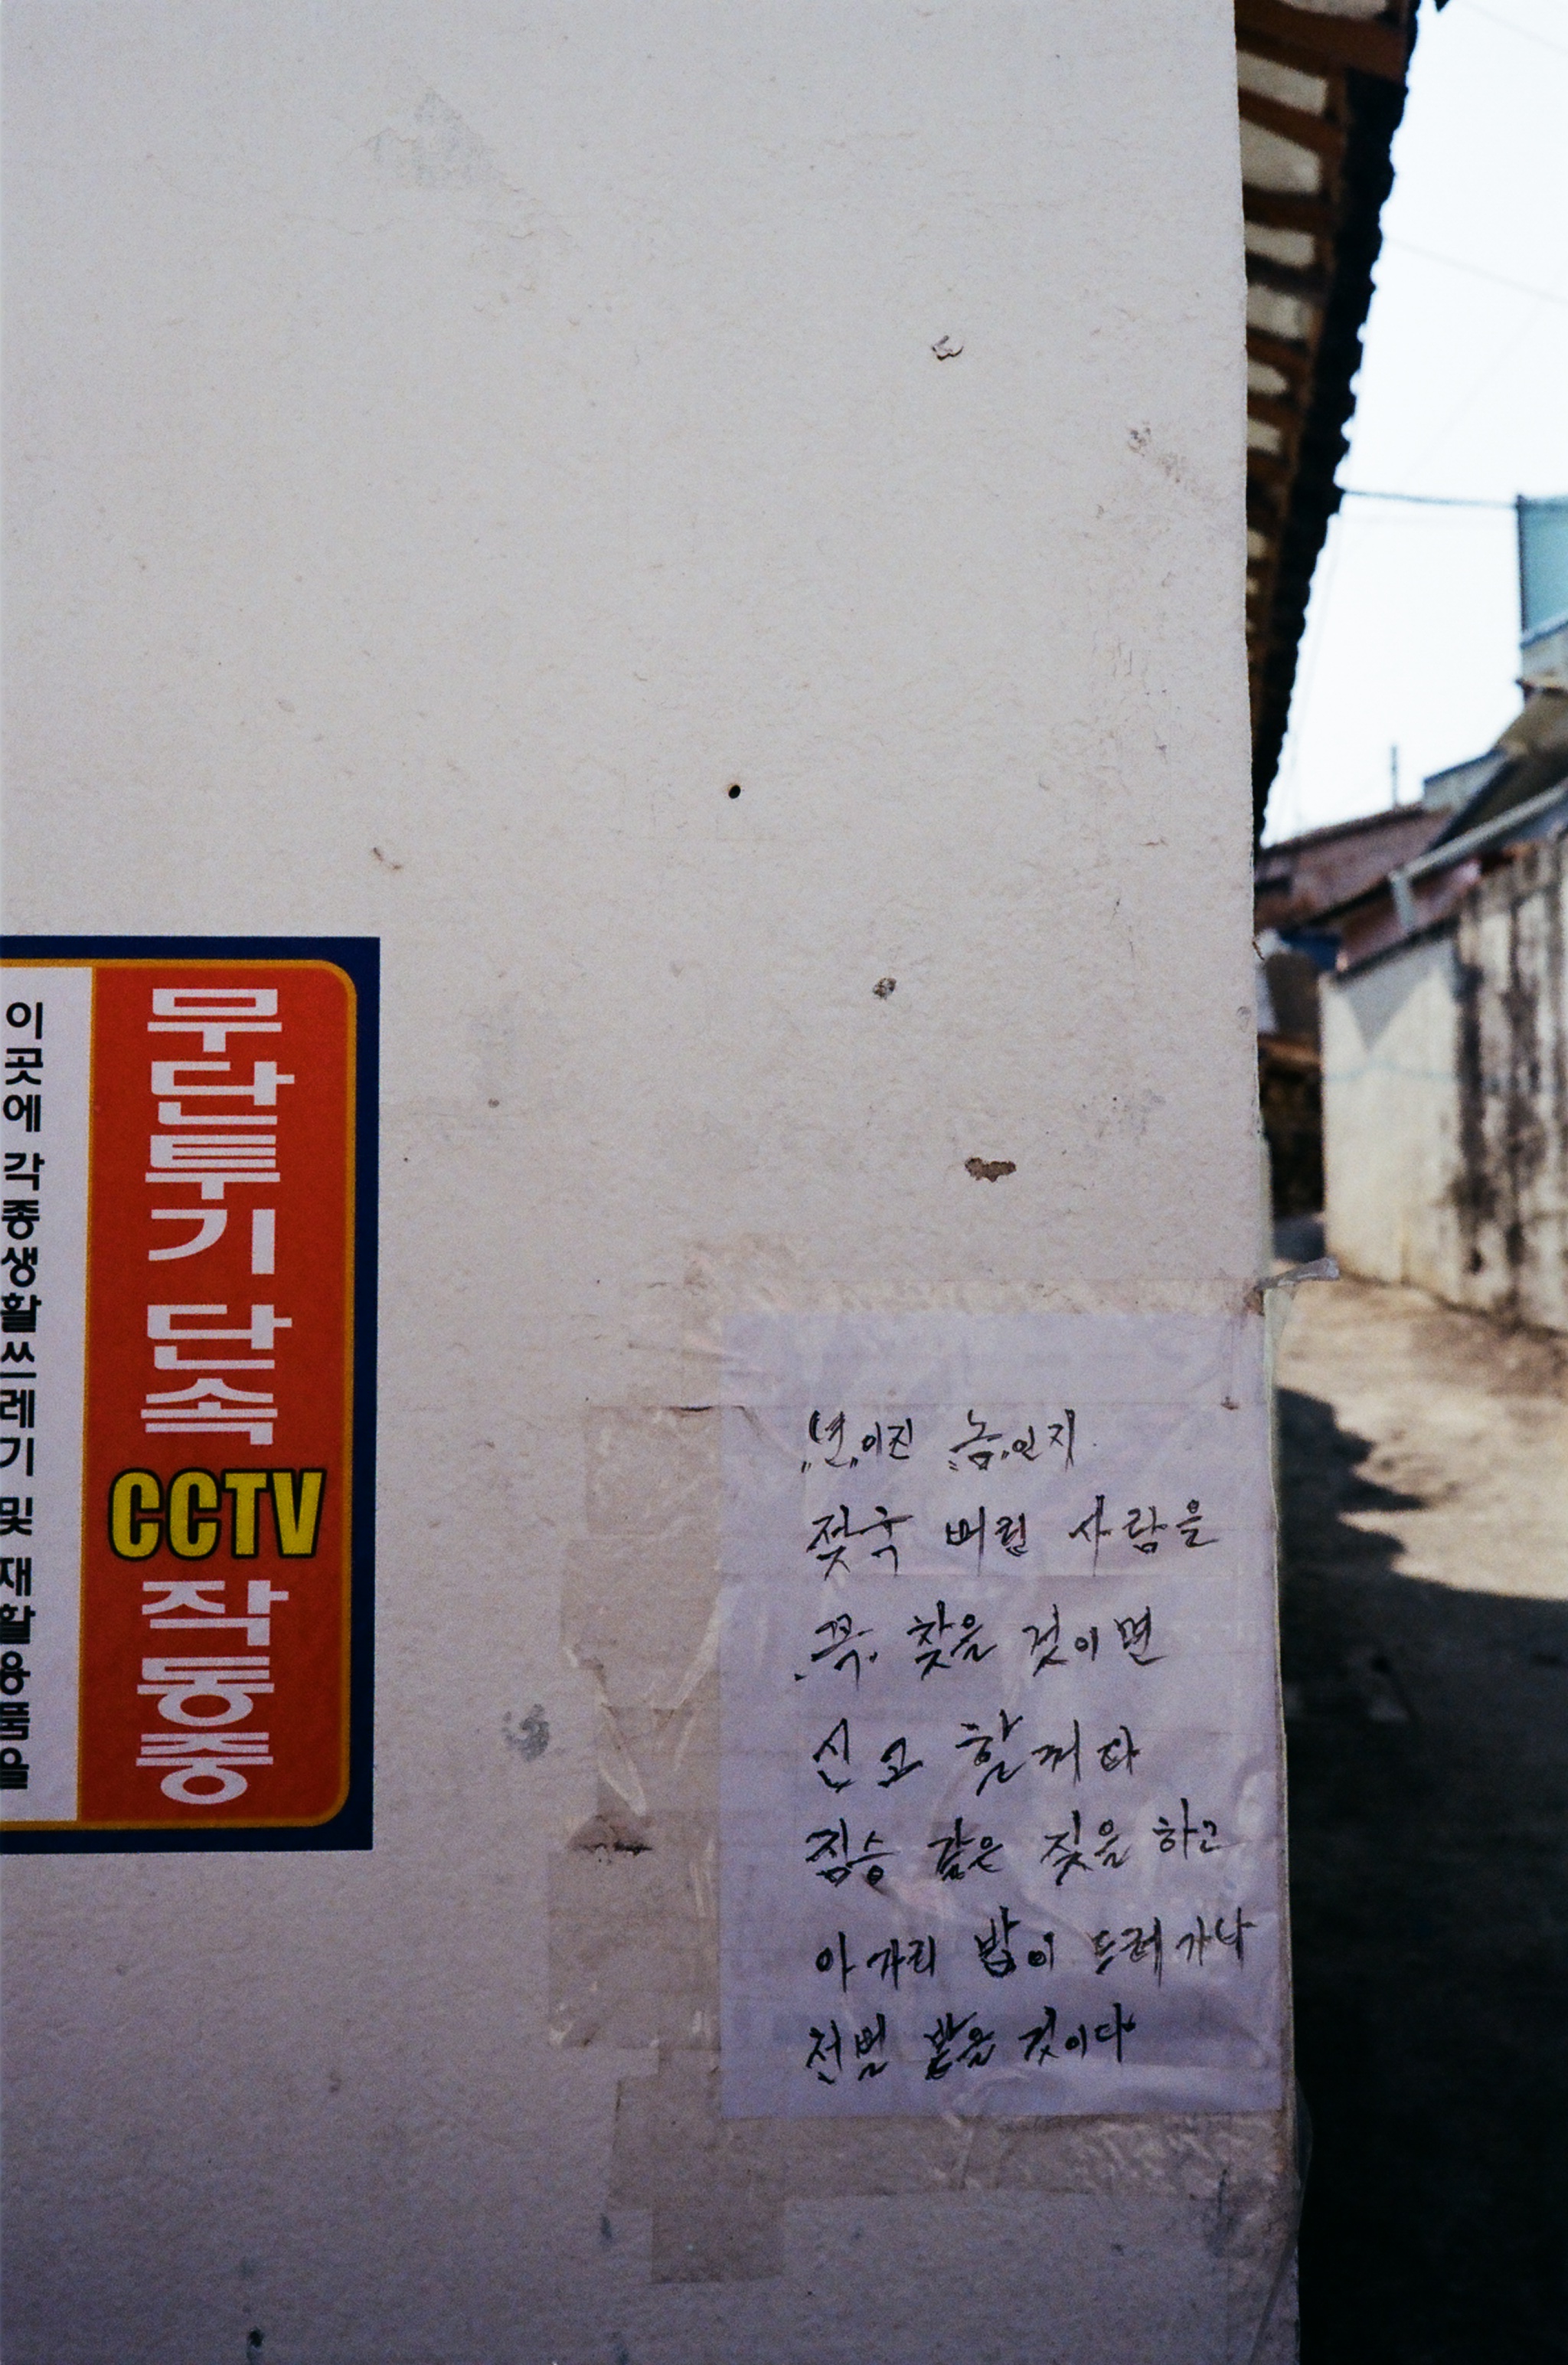 무단투기 단속 CCTV 작동중
이곳에 각종생활쓰레기 및 재활용품을
"년"이진 "놈"인지
젖국 버린 사람을
꼭 찾을 것이면
신고 할꺼다
짐승 같은 짖을 하고
아가리 밥이 드레가나
천벌 받을 것이다